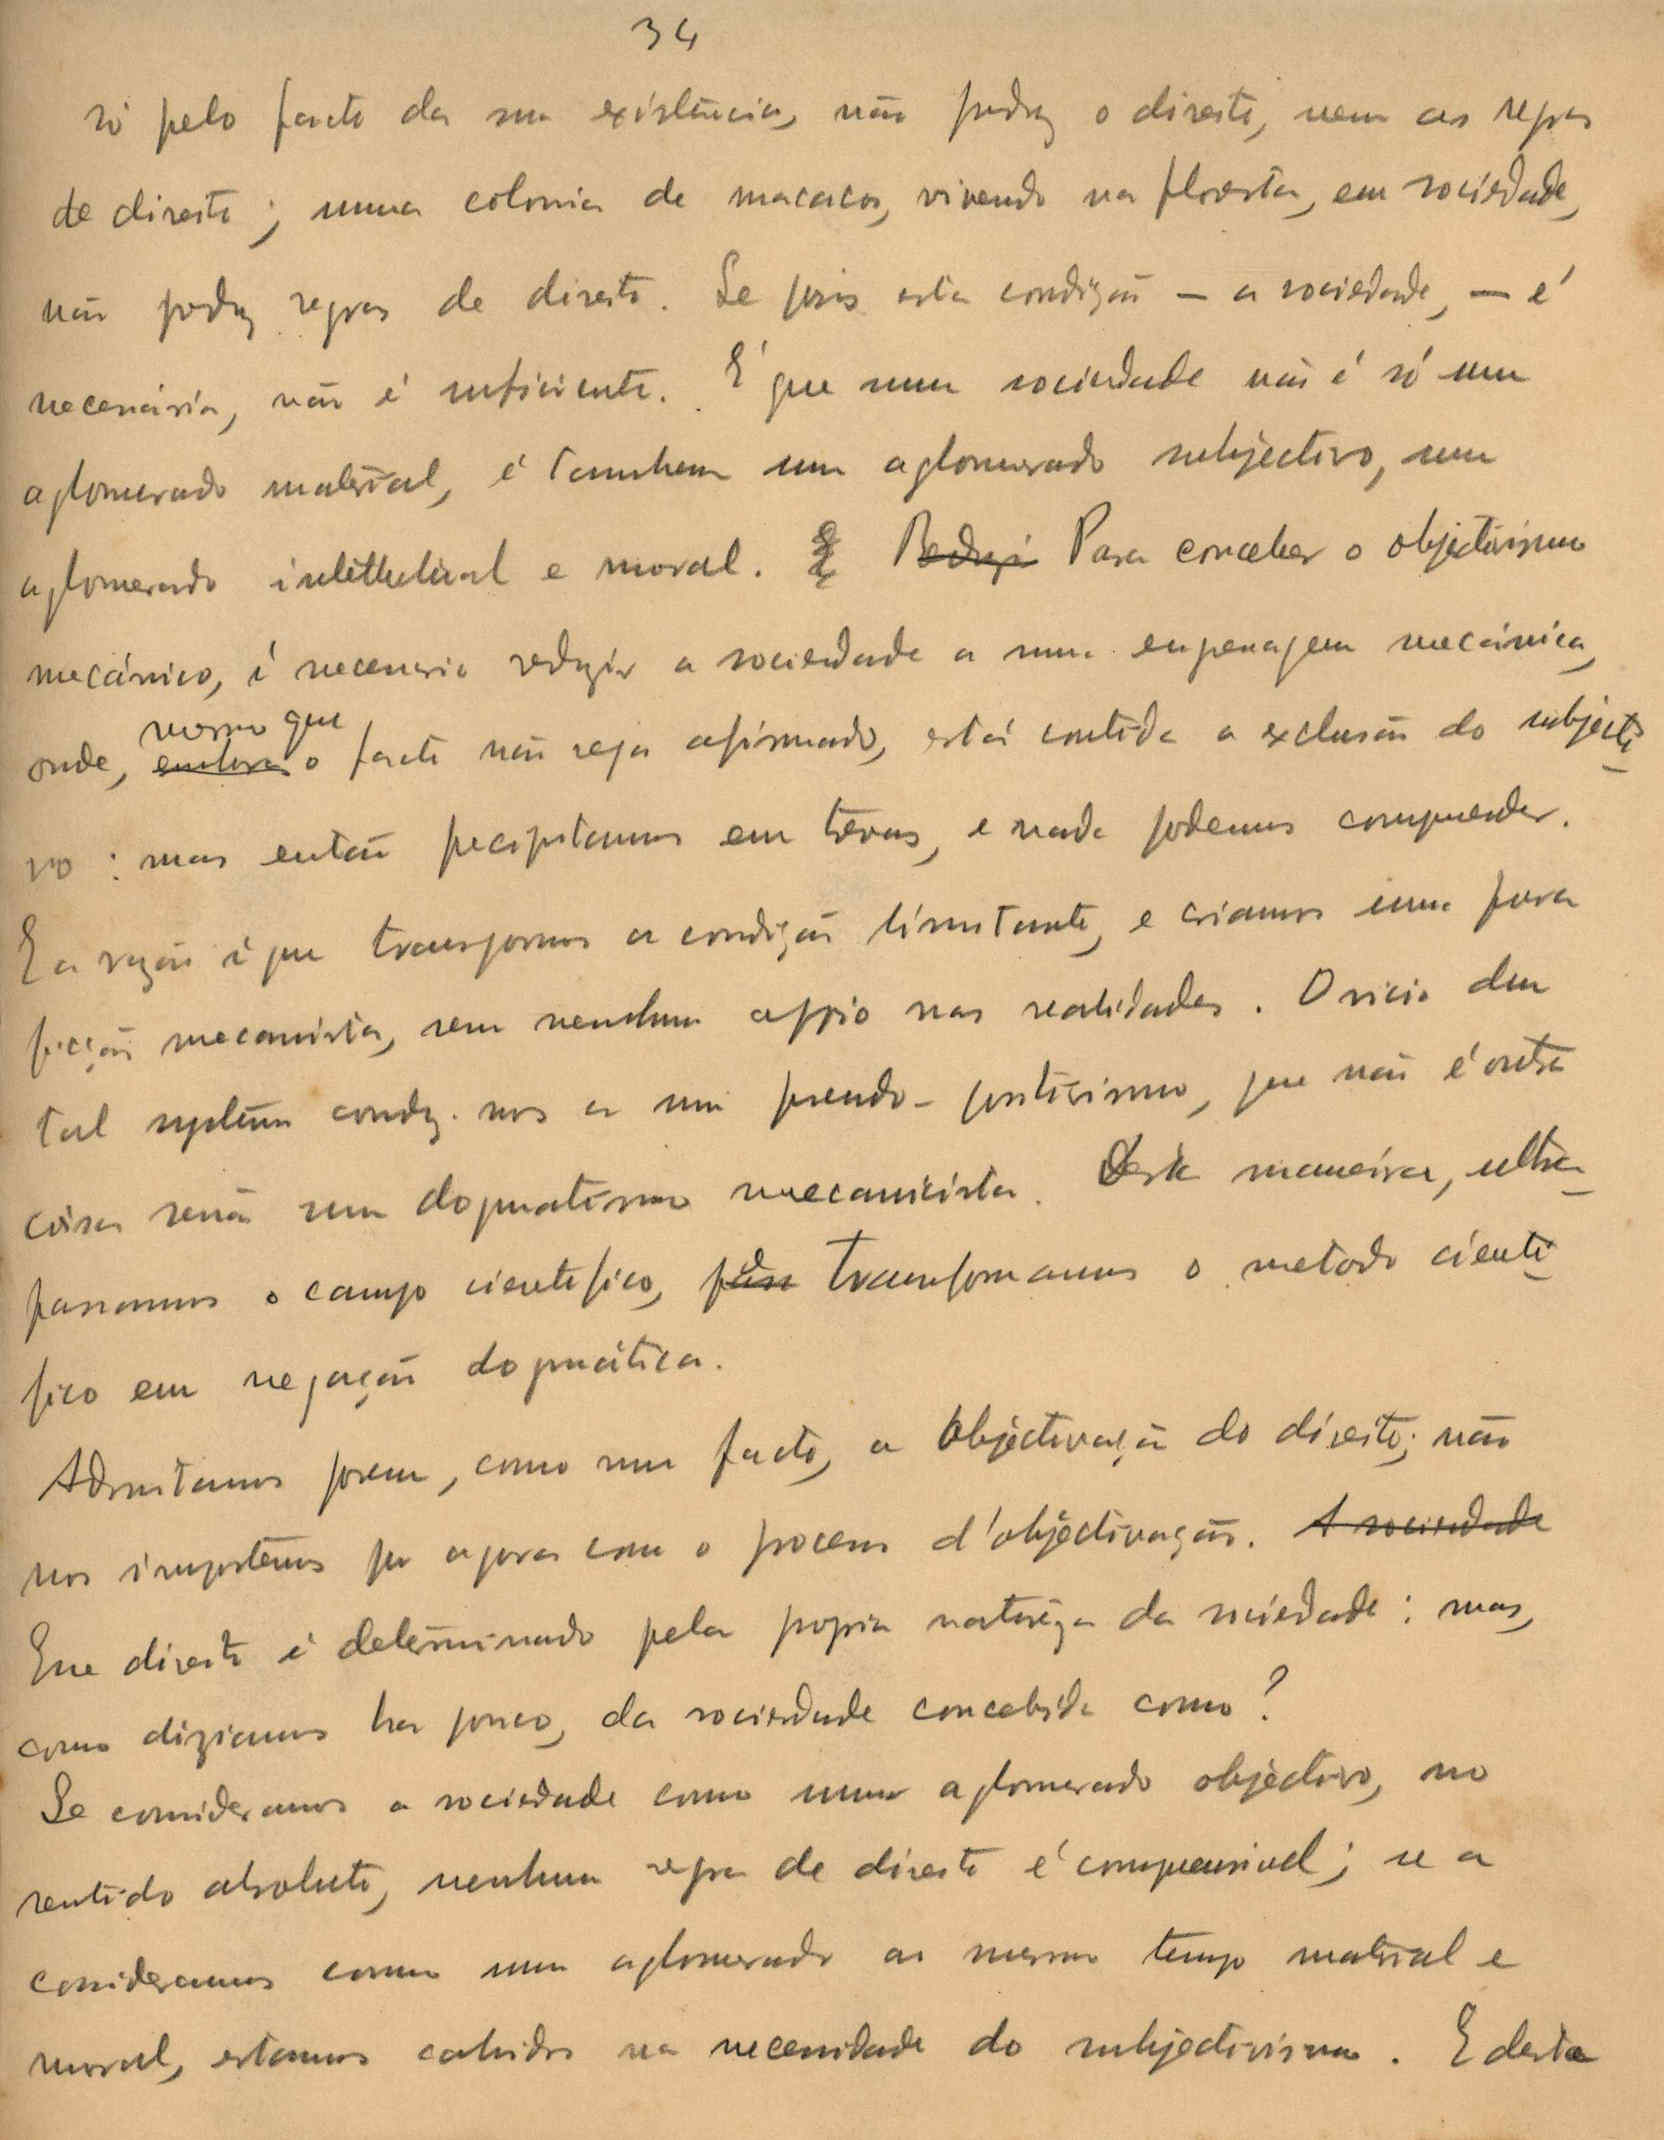 34
só pelo facto da sua existência, não produz o direito, nem as regras
de direito; uma colonia de macacos, vivendo na floresta, em sociedade,
não produz regras de direito. Se pois esta condição — a sociedade, — é
necessária, não é suficiente. É que uma sociedade não é só um
aglomerado material, é tambem um aglomerado subjectivo, um
aglomerado intellectual e moral. Para conceber o objectivismo
mecánico, é necessario reduzir a sociedade a uma engrenagem mecánica,
mesmo que
onde, embora o facto não seja afirmado, está contida a exclusão do subjecti-
vo: mas então precipitamos em trevas, e nada podemos compreender.
E a razão é que transpomos a condição limitante, e criamos uma pura
ficção mecanista, sem nenhum appio nas realidades. O vicio dum
tal systema conduz-nos a um pseudo-positivismo, que não é outra
coisa senão um dogmatismo mecanicista. Desta maneira, ultra-
passamos o campo cientifico, transformamos o metodo cienti-
fico em negação dogmática.
Admitamos porem, como um facto, a objectivação do direito; não
nos importemos por agora com o processo d'objectivação. A sociedade
Esse direito é determinado pela propria natureza da sociedade: mas,
como diziamos ha pouco, da sociedade concebida como?
Se consideramos a sociedade como um aglomerado objectivo, no
sentido absoluto, nenhuma regra de direito é compreensivel; se a
consideramos como um aglomerado ao mesmo tempo material e
moral, estamos cahidos na necessidade do subjectivismo. E desta